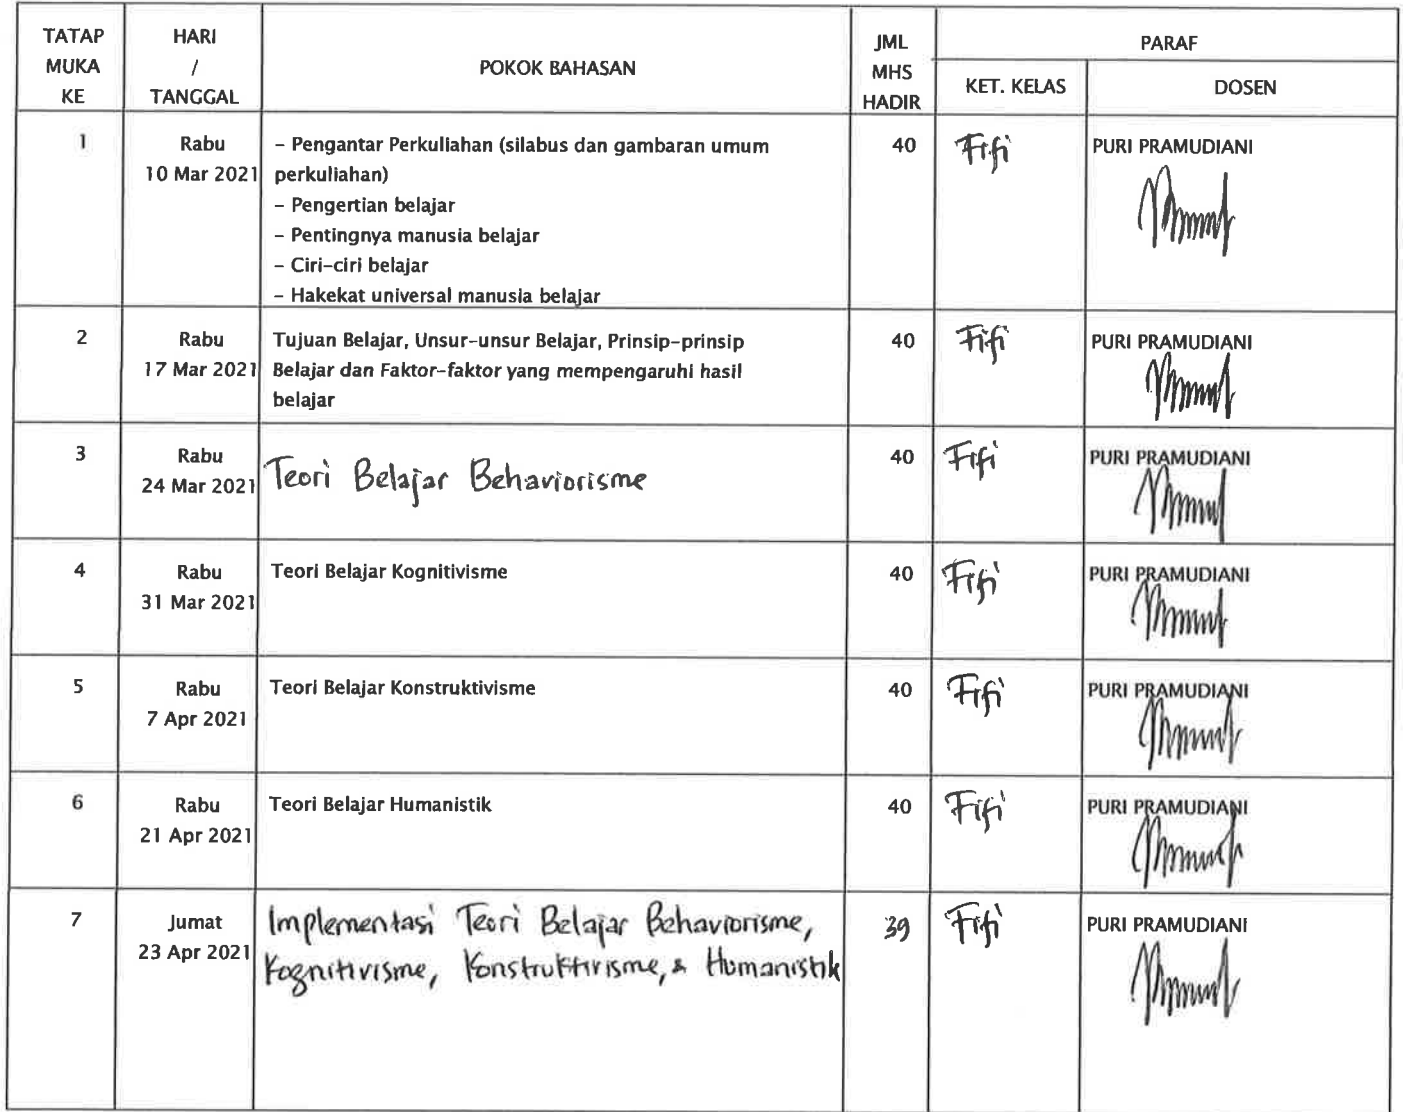 TATAP MUKA KE
HARI / TANGGAL
POKOK BAHASAN
JML MHS HADIR
PARAF
KET. KELAS
DOSEN
1
Rabu
10 Mar 2021
– Pengantar Perkuliahan (silabus dan gambaran umum
perkuliahan)
– Pengertian belajar
– Pentingnya manusia belajar
– Ciri–ciri belajar
– Hakekat universal manusia belajar
40
Fifi
PURI PRAMUDIANI
2
Rabu
17 Mar 2021
Tujuan Belajar, Unsur–unsur Belajar, Prinsip–prinsip
Belajar dan Faktor–faktor yang mempengaruhi hasil
belajar
40
Fifi
PURI PRAMUDIANI
3
Rabu
24 Mar 2021
Teori Belajar Behaviorisme
40
Fifi
PURI PRAMUDIANI
4
Rabu
31 Mar 2021
Teori Belajar Kognitivisme
40
Fifi
PURI PRAMUDIANI
5
Rabu
7 Apr 2021
Teori Belajar Konstruktivisme
40
Fifi
PURI PRAMUDIANI
6
Rabu
21 Apr 2021
Teori Belajar Humanistik
40
Fifi
PURI PRAMUDIANI
7
Jumat
23 Apr 2021
Implementasi Teori Belajar Behaviorisme,
Kognitivisme, Konstruktivisme, & Humanistik
39
Fifi
PURI PRAMUDIANI